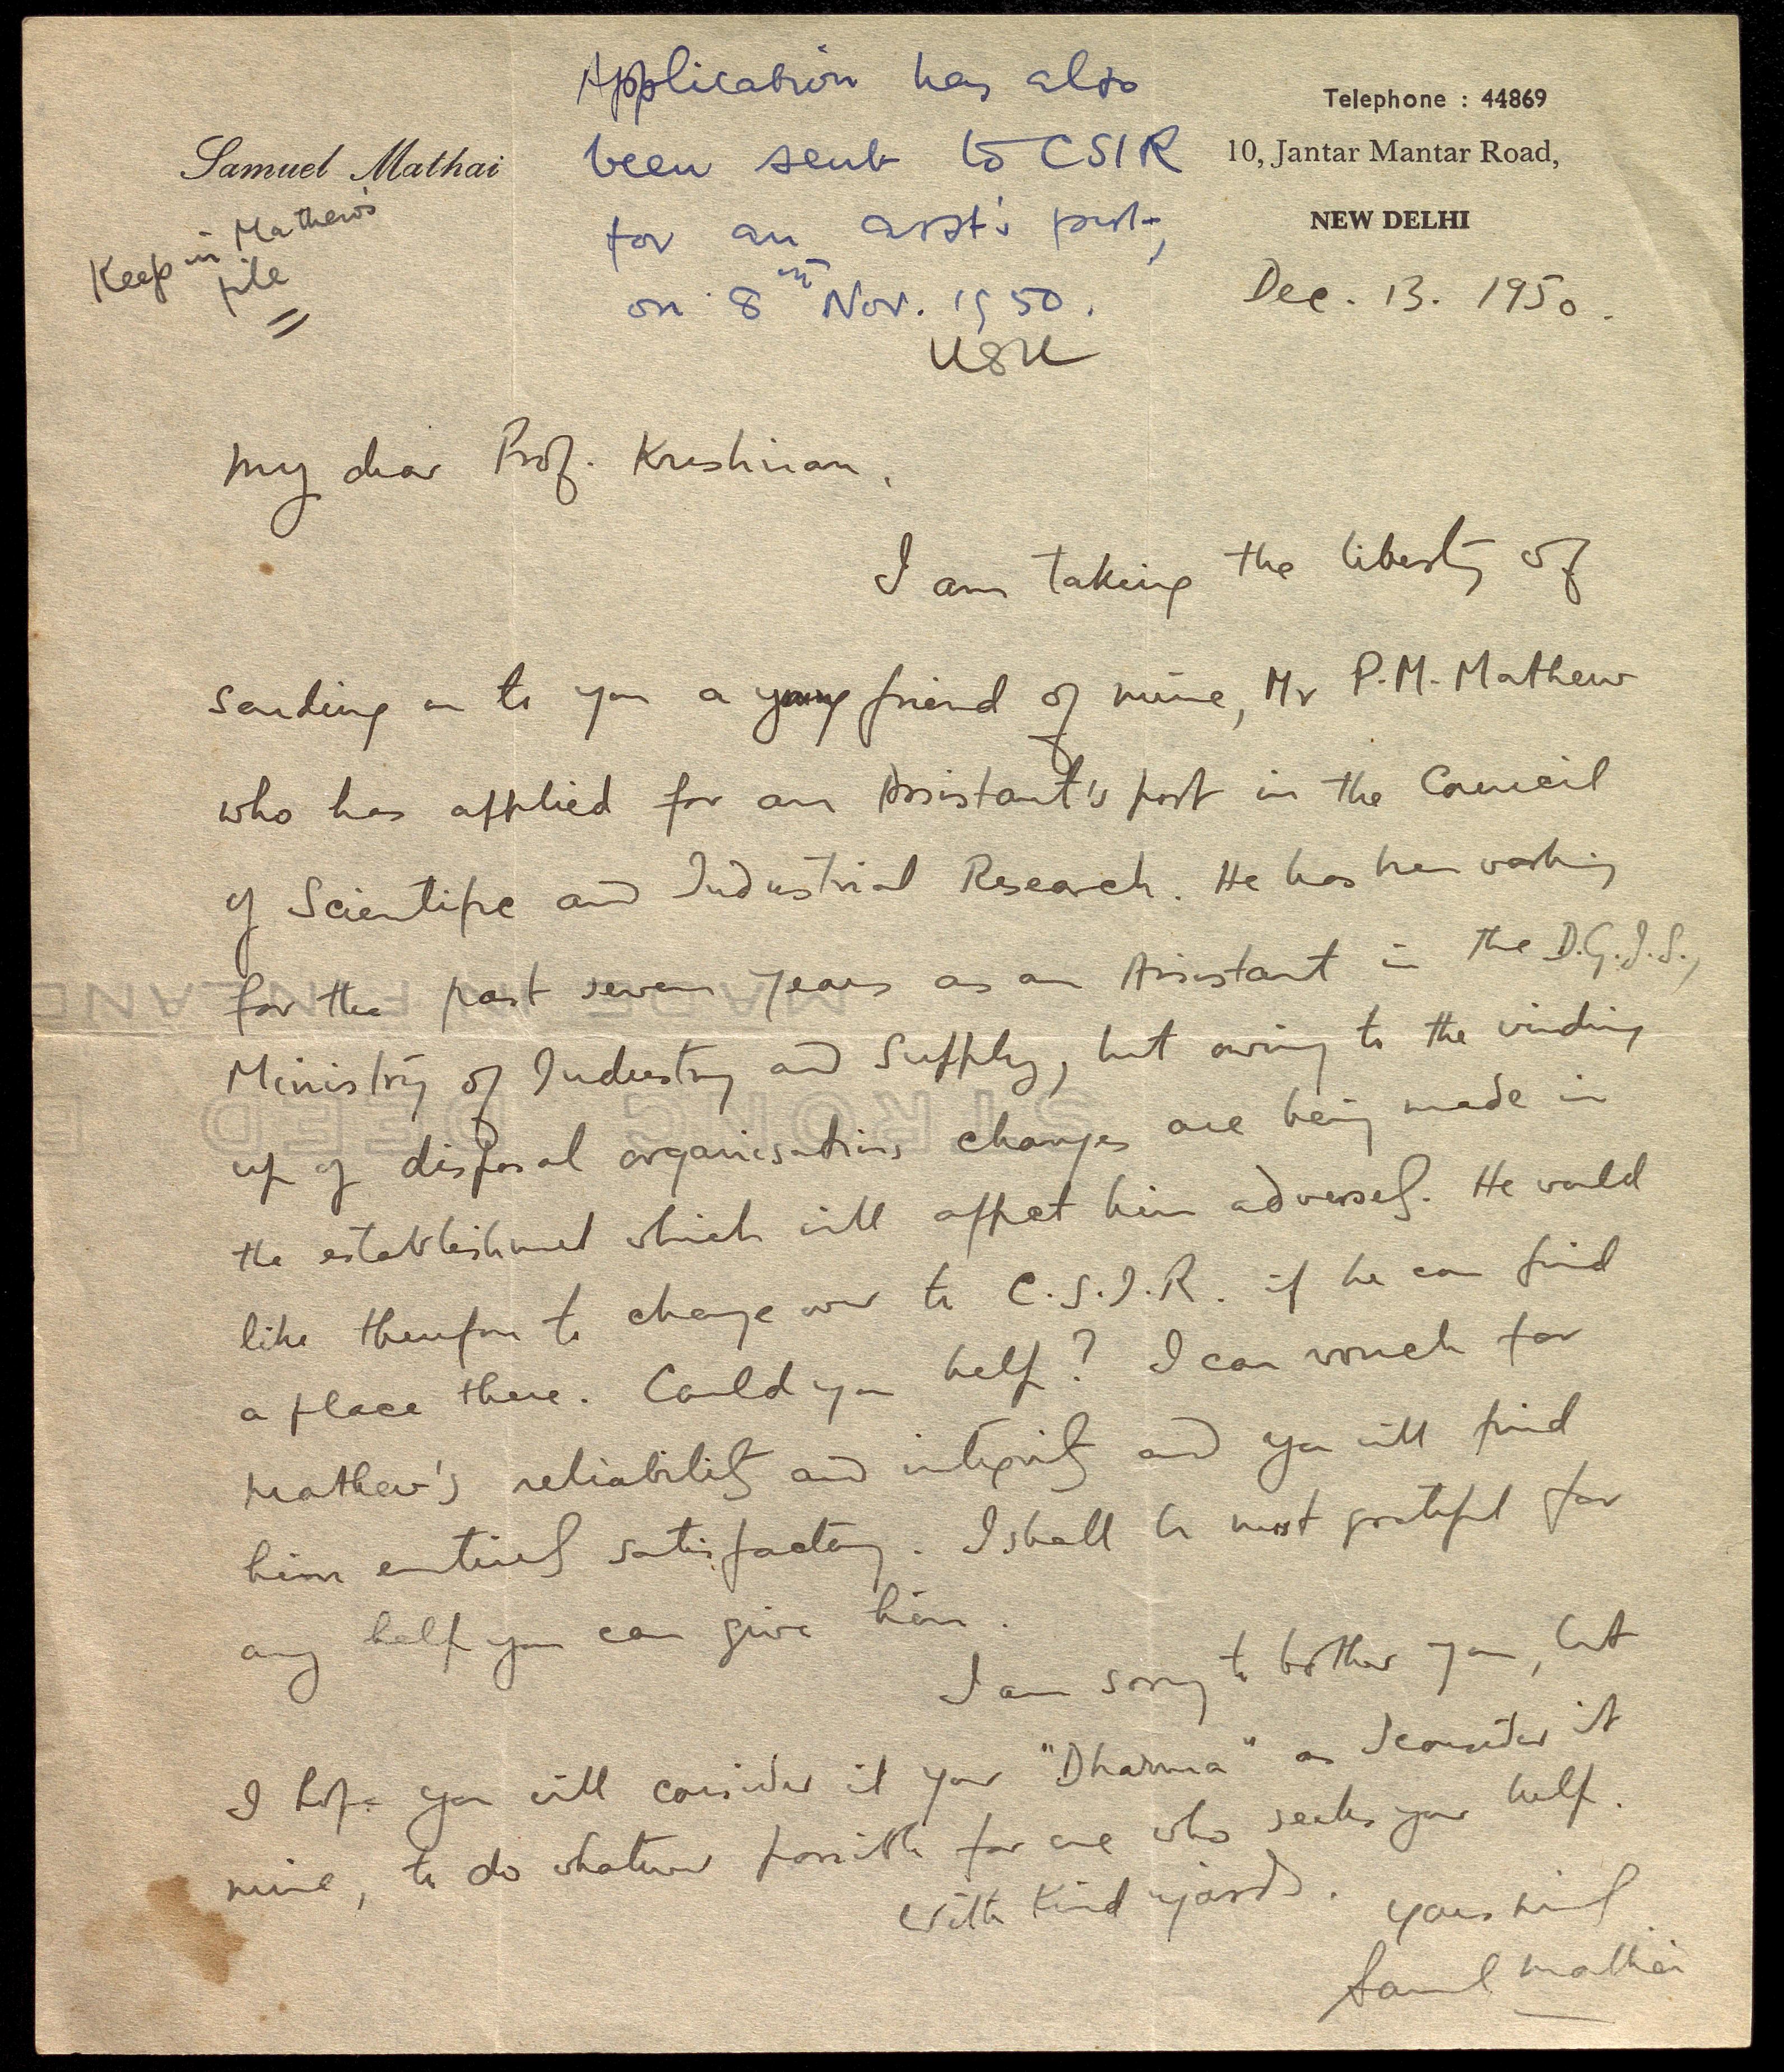 Samuel Mathai
Keep in Mathew's
file
Application has also
been sent to CSIR
for an asst's post,
on 8th Nov. 1950.
Telephone : 44869
10, Jantar Mantar Road,
NEW DELHI
Dec. 13. 1950.
My dear Prof. Krishnan,
I am taking the liberty of
sending on to you a young friend of mine, Mr P.M. Mathew
who has applied for an Assistant's post in the Council
of Scientific and Industrial Research. He has been working
for the past seven years as an Assistant in the D.G.I.S.,
Ministry of Industry and Supply, but owing to the winding
up of disposal organisations changes are being made in
the establishment which will affect him adversely. He would
like therefore to change over to C.S.I.R. if he can find
a place there. Could you help? I can vouch for
Mathew's reliability and integrity and you will find
him entirely satisfactory. I shall be most grateful for
any help you can give him.
I am sorry to bother you, but
I hope you will consider it your "Dharma" as I consider it
mine, to do whatever possible for one who seeks your help.
With kind regards.
Yours
Samuel Mathai
MADE IN FINLAND
STRONG DEED